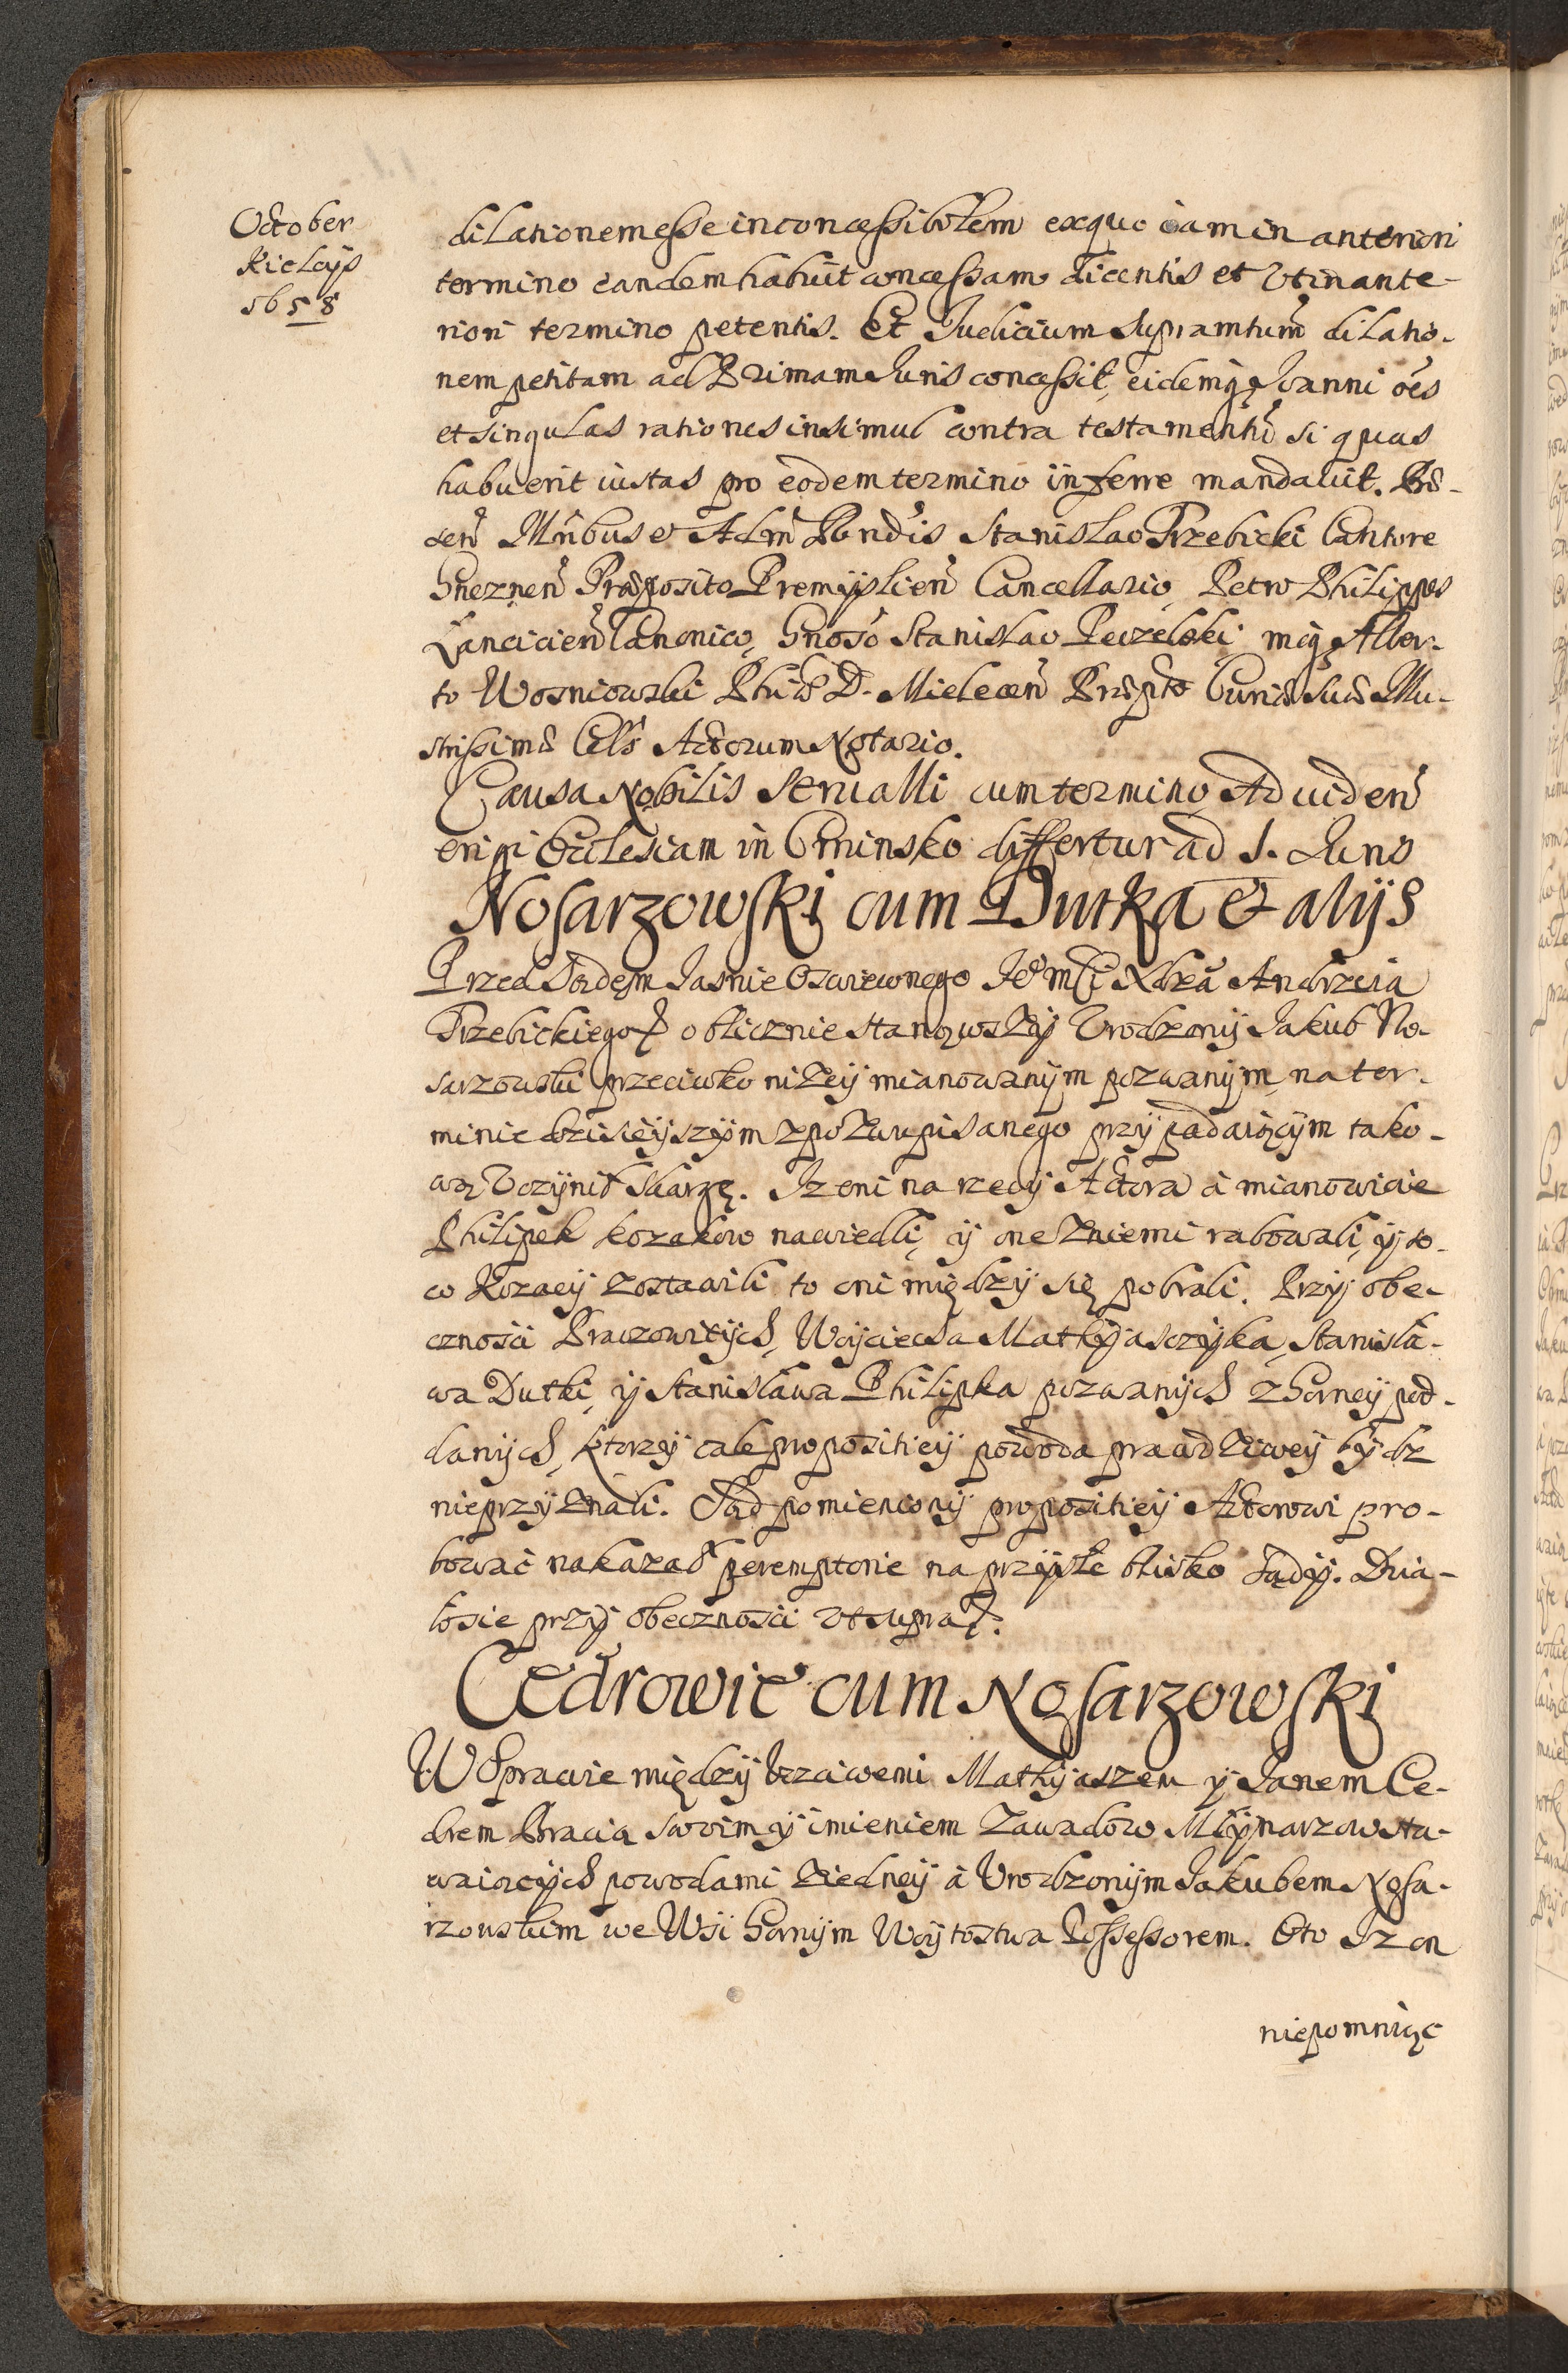 October
Kielcijs
1658
dilationem esse inconcessibilem exquo iam in anteriori
termino eandem habuit concessam dicentis et Vt in ante-
riori termino petentis. Et Iudicium supramtum dilatio-
nem petitam ad Primam Iuris concessit, eidemq Ioanni oes
et singulas rationes insimul contra testamentu si quas
habuerit iustas pro eodem termino inferre mandauit. Prae-
sen Mribus et Adm Rendis Stanislao Trzebicki Cantore
Gneznen Praeposito Premijslien Cancellario, Petro Philippes
Lancicien Canonico, Gnoso Stanislao Peczelski mgq Alber-
to Wosniowski Phiae D. Mielecen Praepto Curiae Suae Illu-
strissimae Cels Actorum Notario.
Causa Nobilis Seruatli cum termino Ad uiden
erigi Ecclesiam in Cminsko differtur ad 1. Iuris
Nosarzowski cum Dutka & alijs
Przed Sądem Iasnie Oswieconego Ieo Msci Xdza Andrzeia
Trzebickiego oblicznie stanąwszij Vrodzonij Jakub No-
sarzowski przeciwko niżeij mianowanijm pozwanijm, na ter-
minie dzisieijszijm z pozwu pisanego przij padaiącijm tako-
wą Vczijnił skargę. Iz oni na rzecij Actora a mianowicie
Philipek kozakow nawiedli, ij one zniemi rabowali, ij to
co Kozacij zostawili to oni międzij się pobrali. Przij obe-
cznosci Praczowitijch, Woijciecha Mathijasczijka, Stanisła-
wa Dutki, ij Stanisława Philipka pozwanijch z Gorneij pod-
danijch, ktorzij cale propositieij powoda prawdziweij bijdz
nieprzijznali. Sąd pomienionij propositieij Actorowi pro-
bować nakazał peremptorie na przijszłe blisko Sądij. Dzia-
łosie przij obecznosci vt supra.
Cedrowie cum Nosarzowski
W Sprawie międzij Vczciwemi Mathijaszem ij Janem Ce-
drem Bracią swoim ij imieniem Zawadow Młijnarzow sta-
waiącijch powodami z iedneij a Vrodzonijm Jakubem Nosa-
rzowskim we Wsi Gornijm Woijtostwa Possessorem. Oto Iz on
niepomniąc